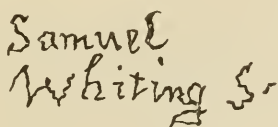 Samuel
Whiting S.